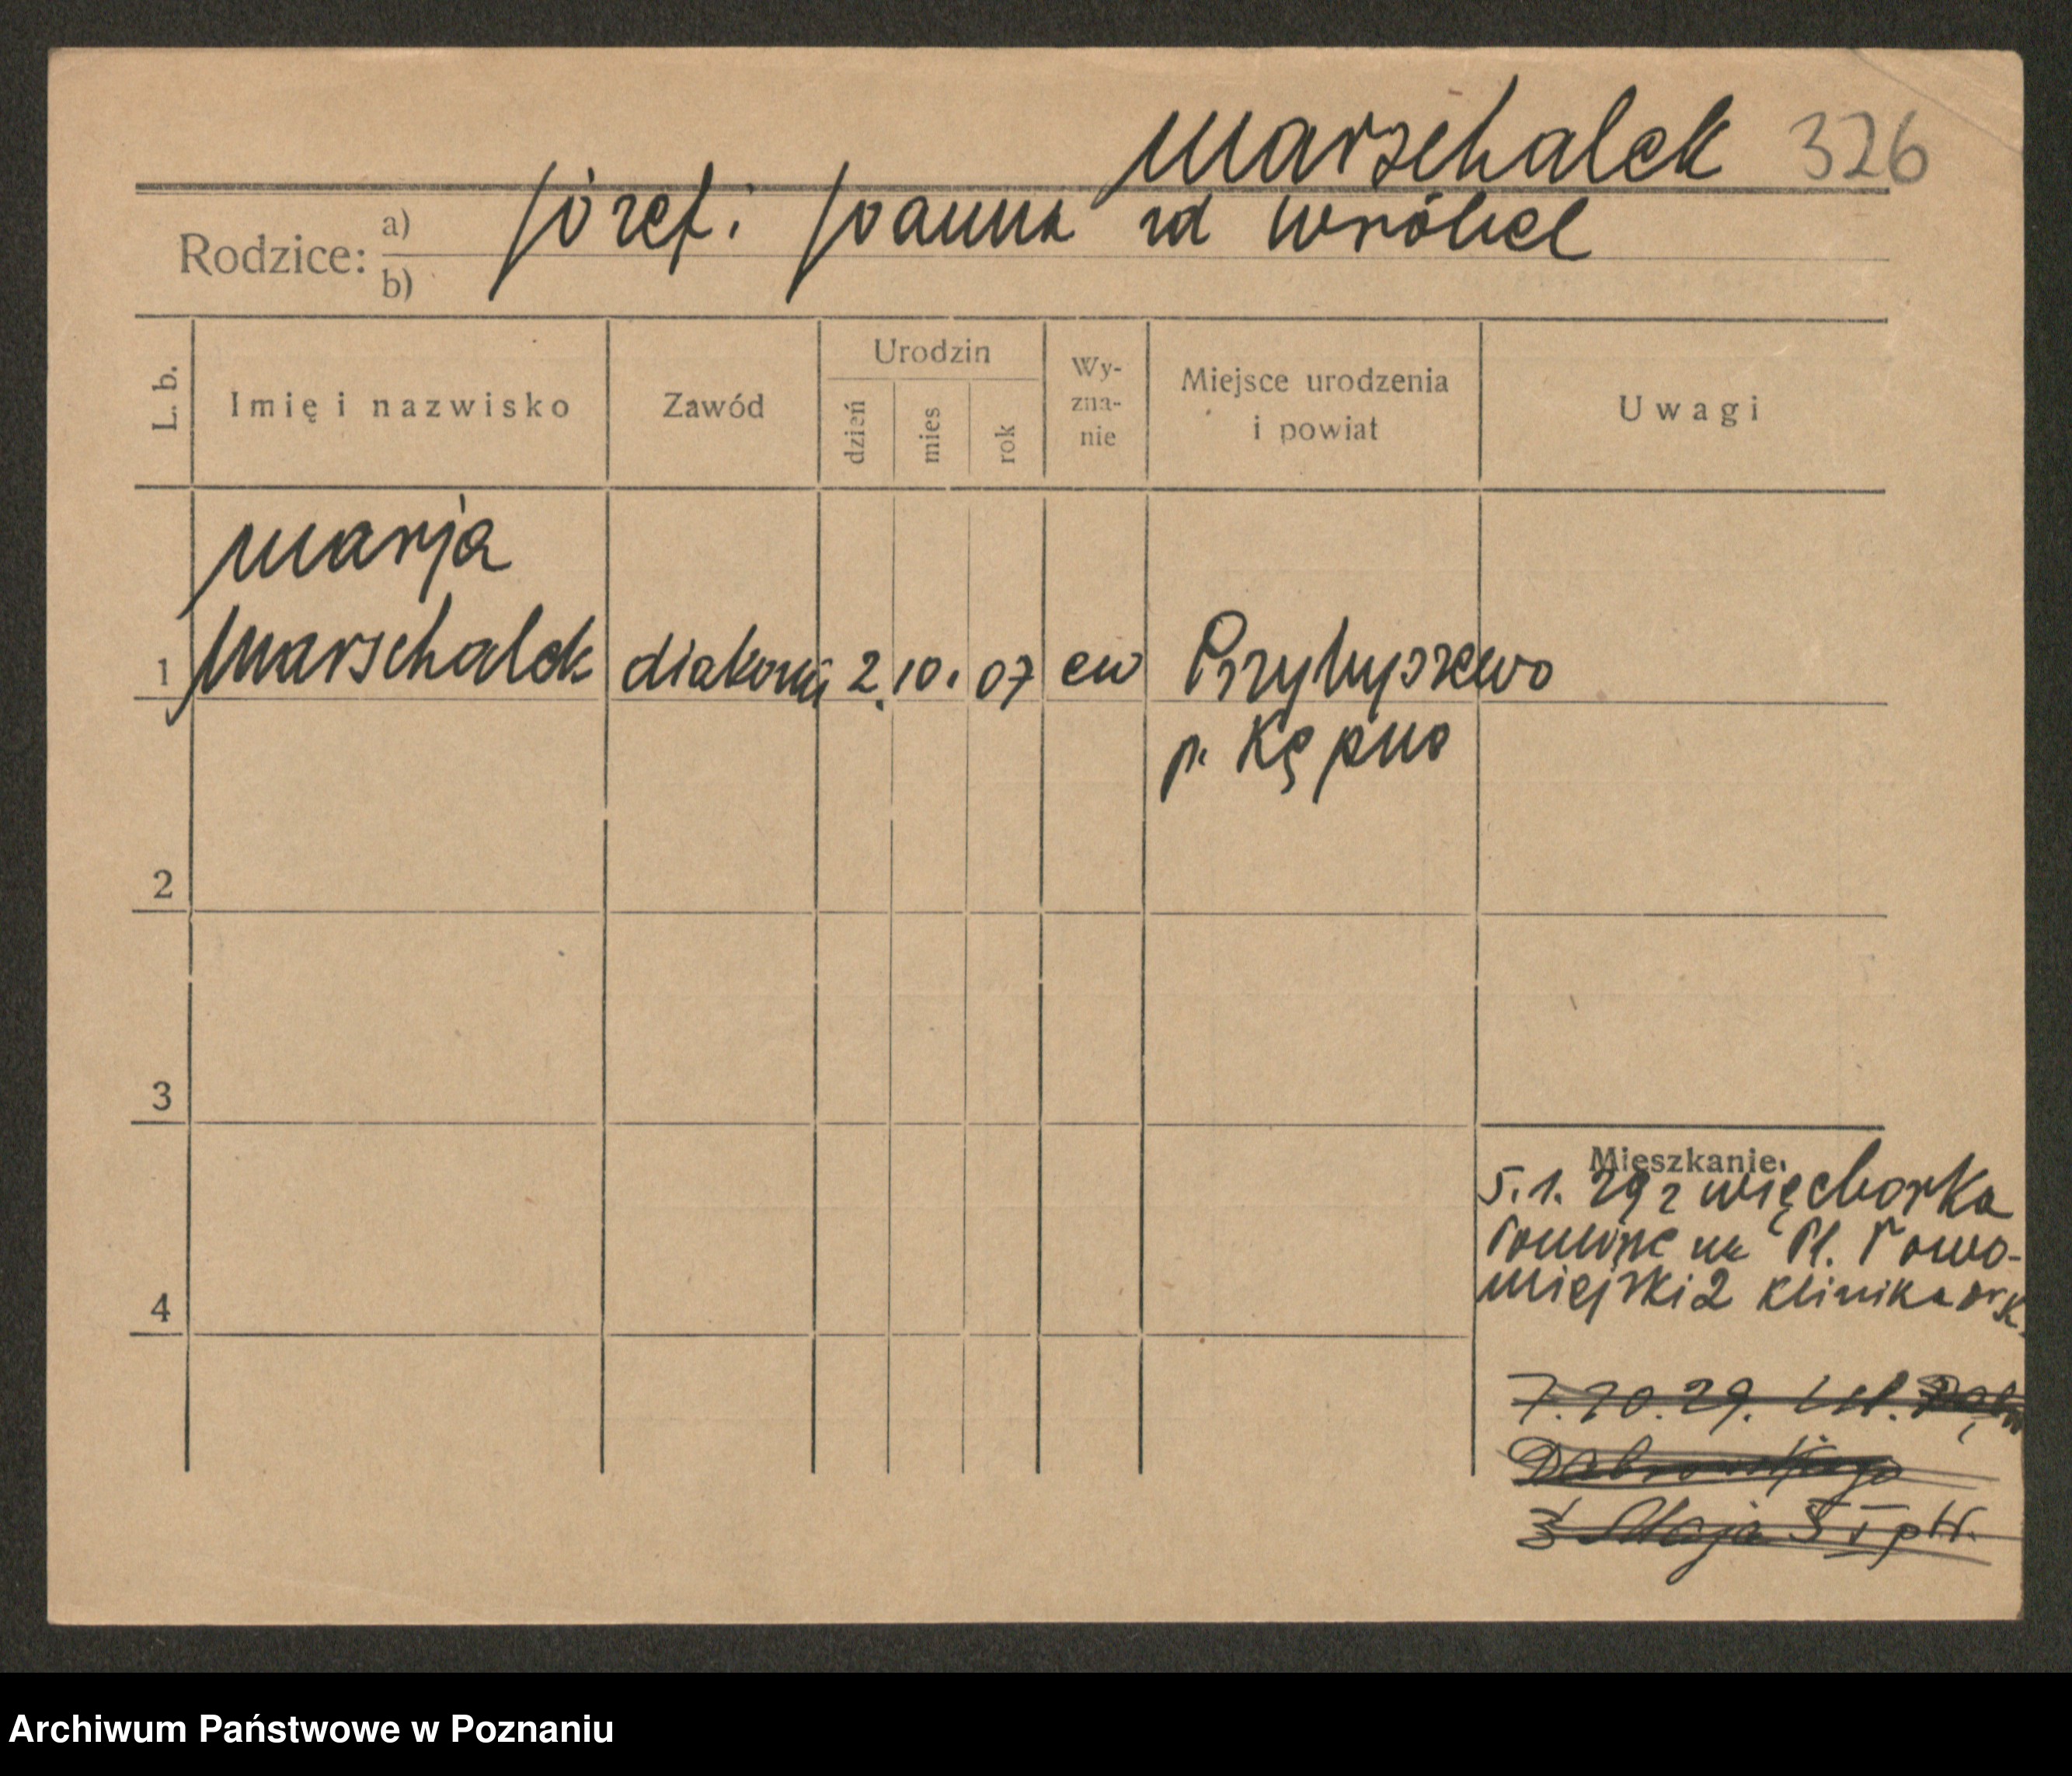 Marschalek 326
Rodzice: a) Józef i Joanna zd Wróbel
b)
L. b. Imię i nazwisko Zawód Urodzin dzień mies rok Wy-zna-nie Miejsce urodzenia i powiat Uwagi
Marja
1 Marschalek diakoni 2. 10. 07 ew Przybyszewo
p. Kępno
2
3
Mieszkanie.
5.1.29 z Więcborka
na Pl. Nowo-
4 miejski 2 klinika
7.10.29.
Dąbrowskiego
3 Maja 5 I ptr.
Archiwum Państwowe w Poznaniu